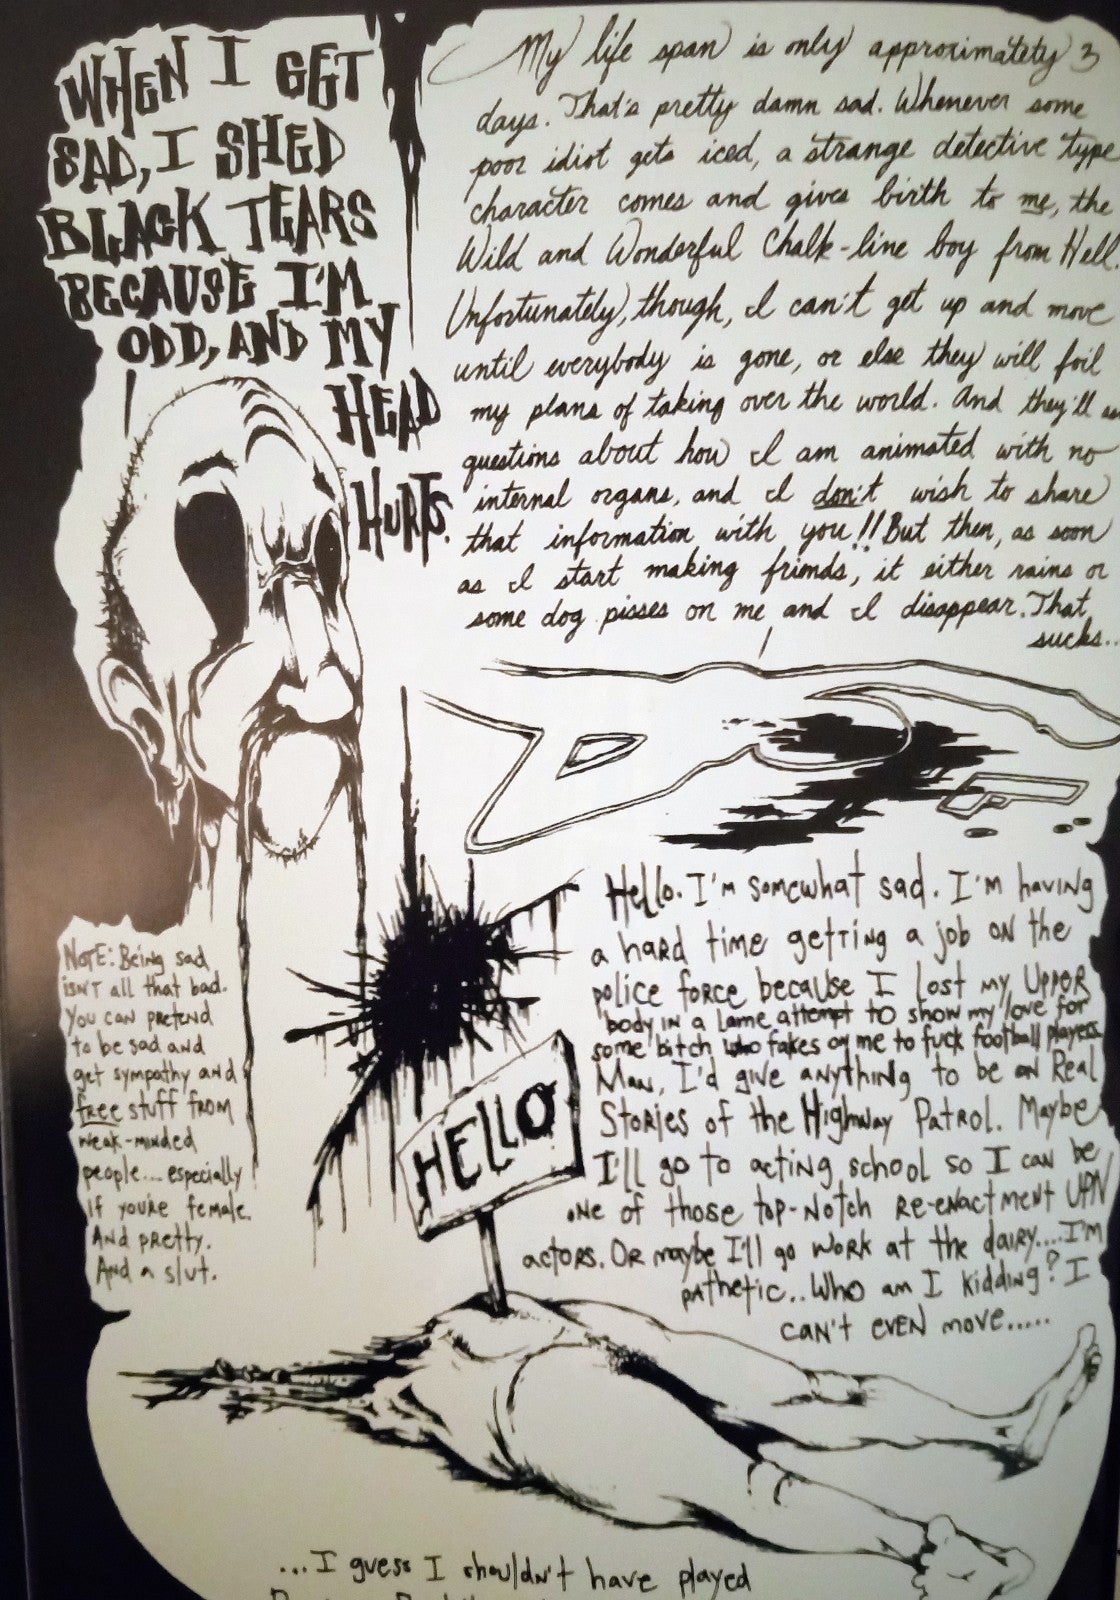 WHEN I GET
SAD, I SHED
BLACK TEARS
BECAUSE I'M
ODD, AND MY
HEAD
HURTS.
My life span is only approximately 3
days. That's pretty damn sad. Whenever some
poor idiot gets iced, a strange detective type
character comes and gives birth to me, the
Wild and Wonderful Chalk-line boy from Hell.
Unfortunately, though, I can't get up and move
until everybody is gone, or else they will foil
my plans of taking over the world. And they'll
questions about how I am animated with no
internal organs, and I don't wish to share
that information with you!! But then, as soon
as I start making friends, it either rains or
some dog pisses on me and I disappear. That
sucks..
NOTE: Being sad
isn't all that bad.
You can pretend
to be sad and
get sympathy and
free stuff from
weak-minded
people.... especially
if you're female.
And pretty.
And a slut.
HELLO
Hello. I'm somewhat sad. I'm having
a hard time getting a job on the
police force because I lost my upper
body in a lame attempt to show my love for
some bitch who fakes on me to fuck football players.
Man, I'd give anything to be on Real
Stories of the Highway Patrol. Maybe
I'll go to acting school so I can be
one of those top-notch re-enactment UPN
actors. Or maybe I'll go work at the dairy....I'm
pathetic..Who am I kidding? I
can't even move.....
...I guess I shouldn't have played